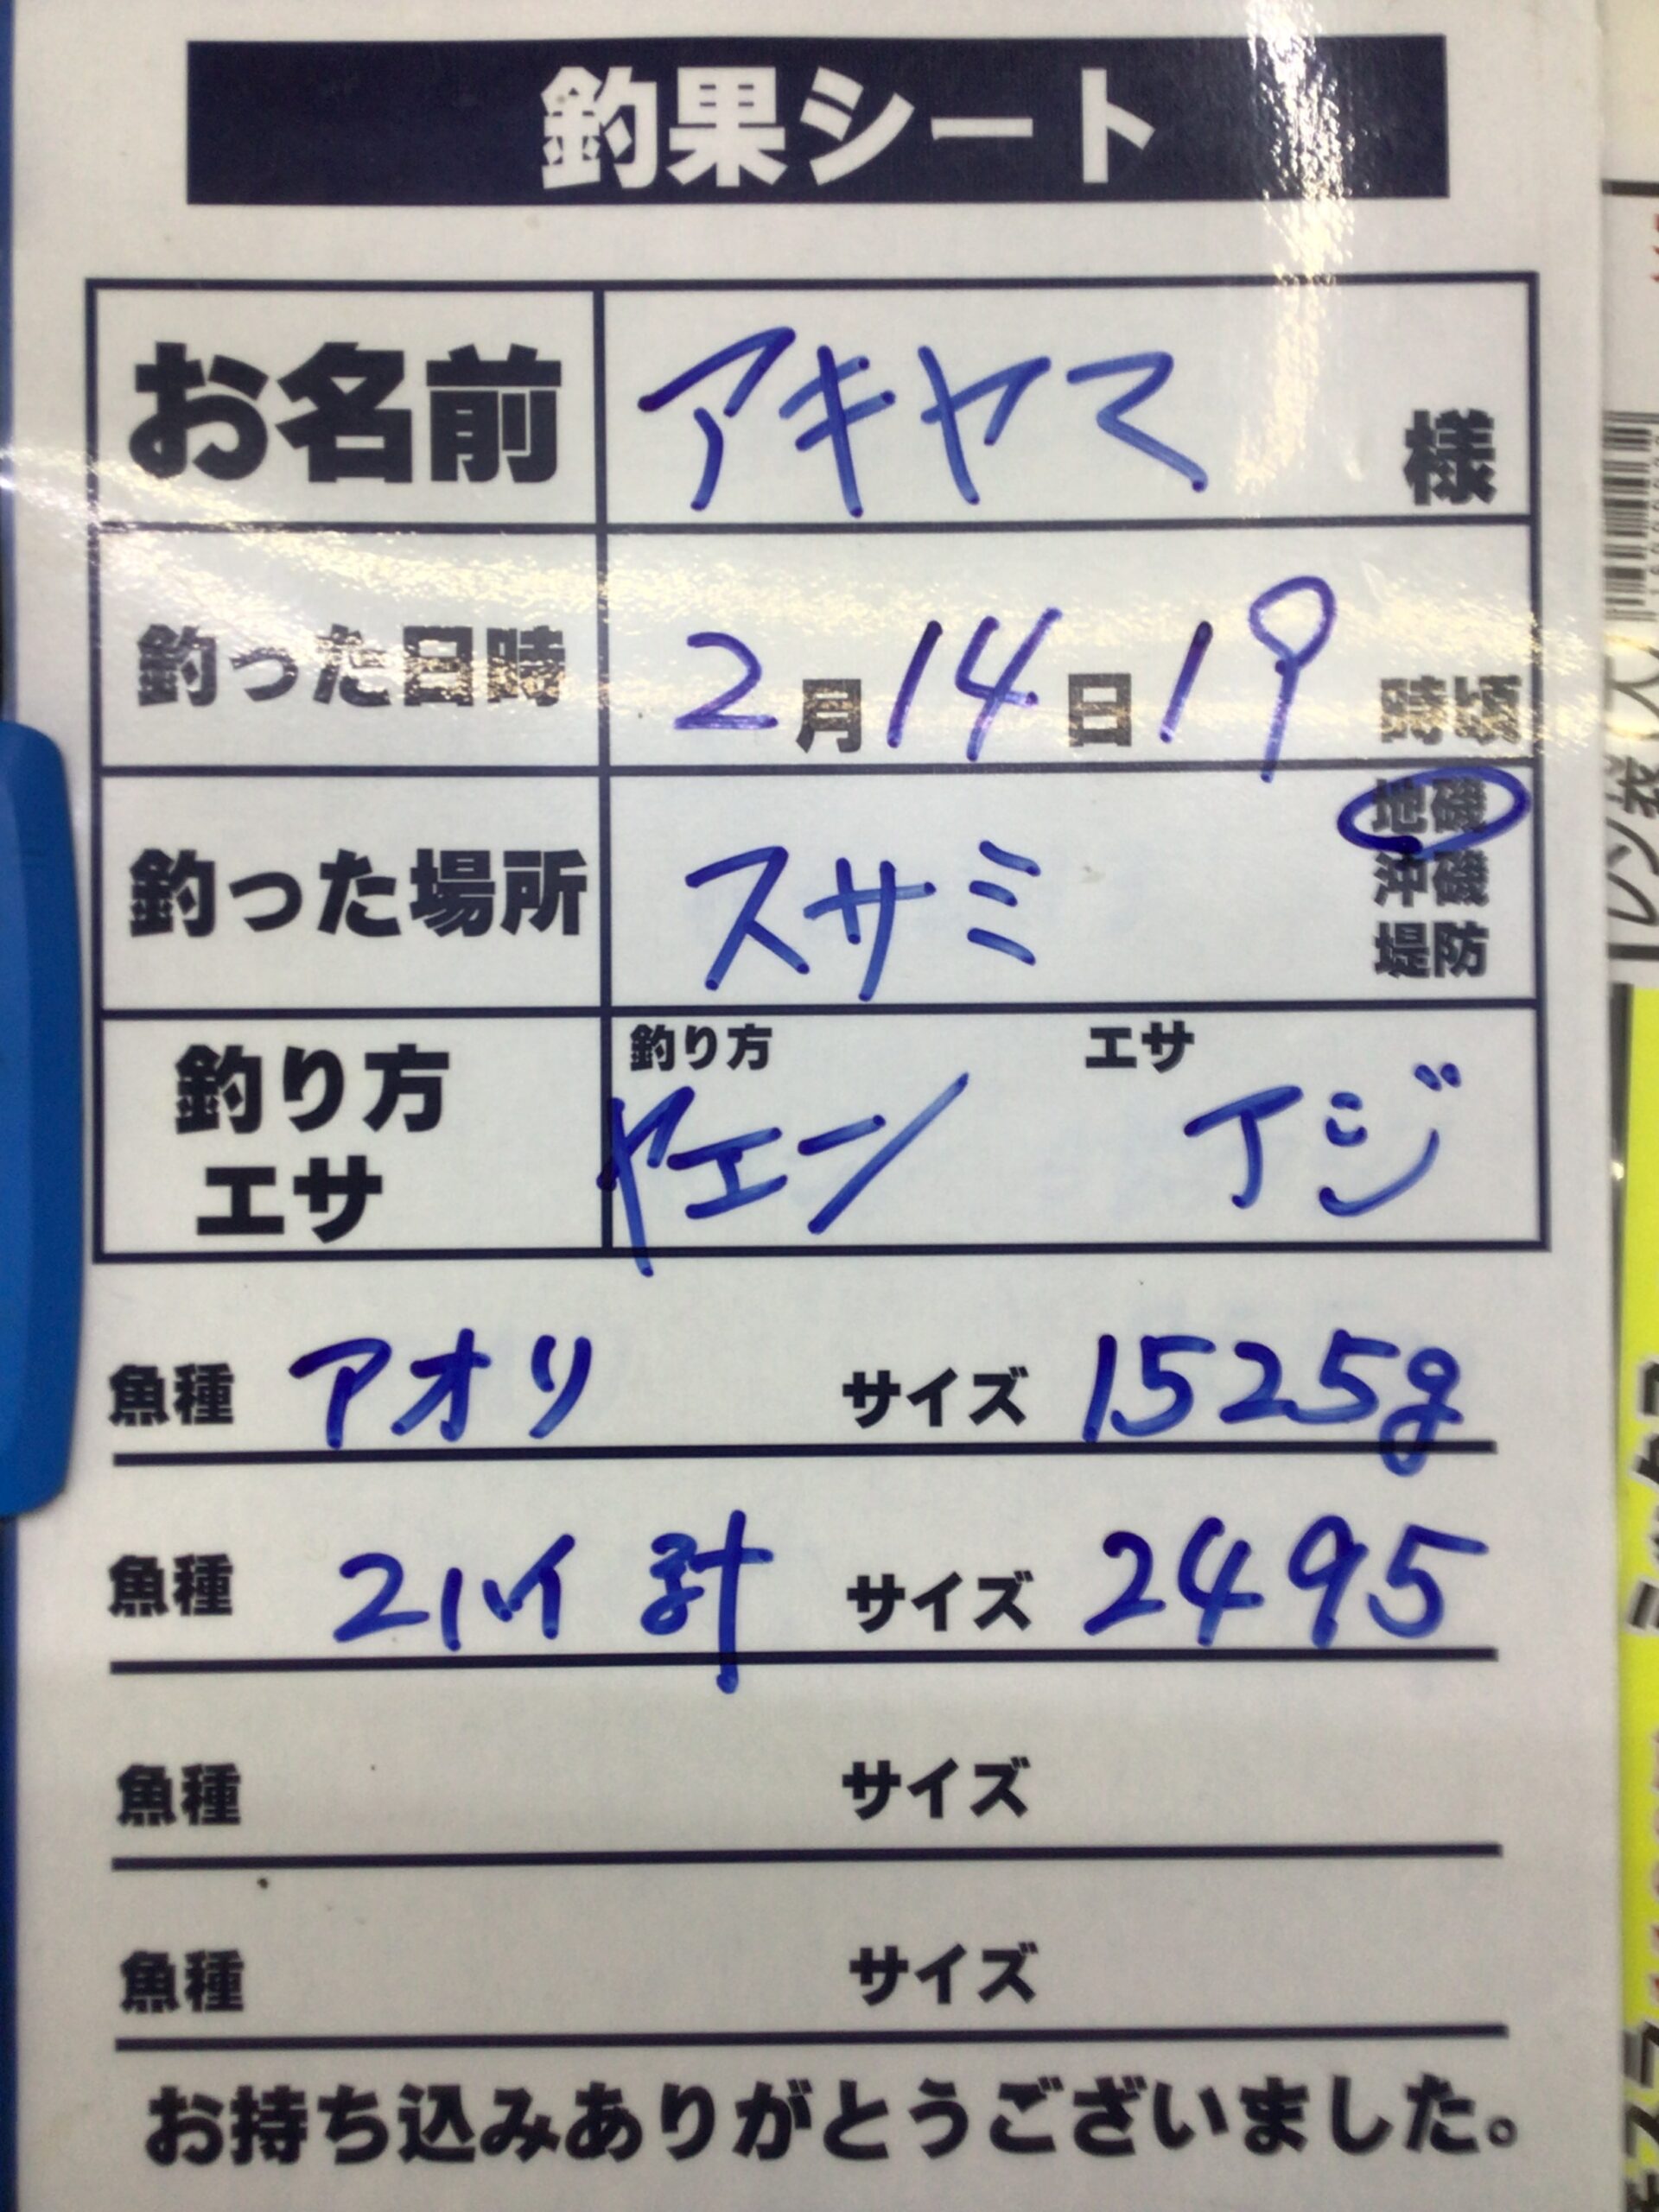 釣果シート
お名前 アキヤマ 様
釣った日時 2月14日19時頃
釣った場所 スサミ 地磯
沖磯
堤防
釣り方 エサ
釣り方 エサ
ヤエーン アジ
魚種 アオリ サイズ 1525g
魚種 2ハイ計 サイズ 2495
魚種 サイズ
魚種 サイズ
お持ち込みありがとうございました。